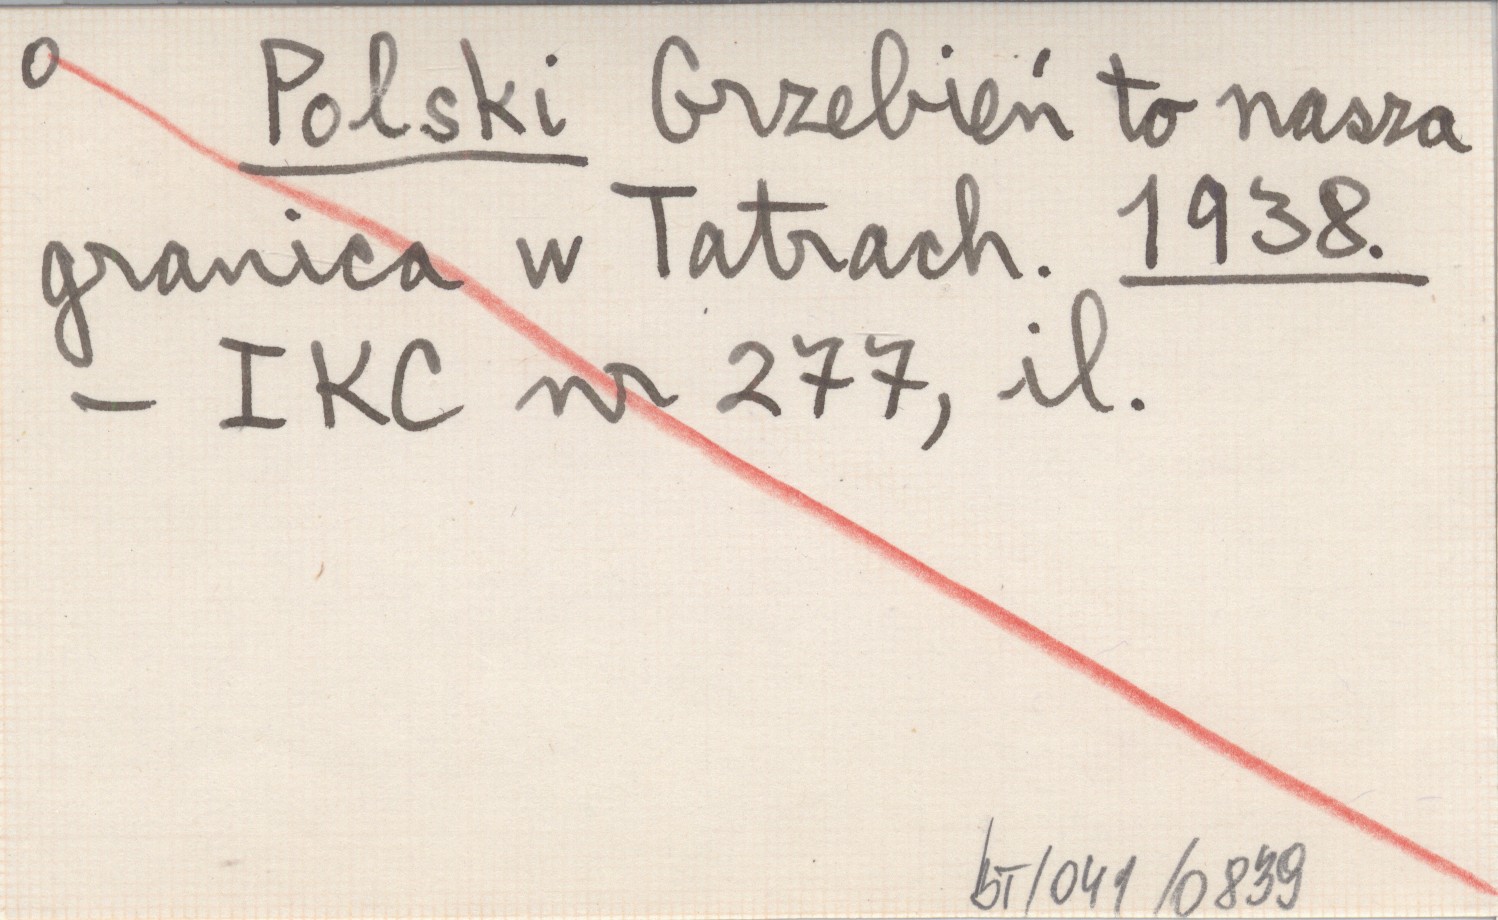 o Polski Grzebień to nasza
granica w Tatrach. 1938.
– IKC nr 277, il.
bT/041/0839